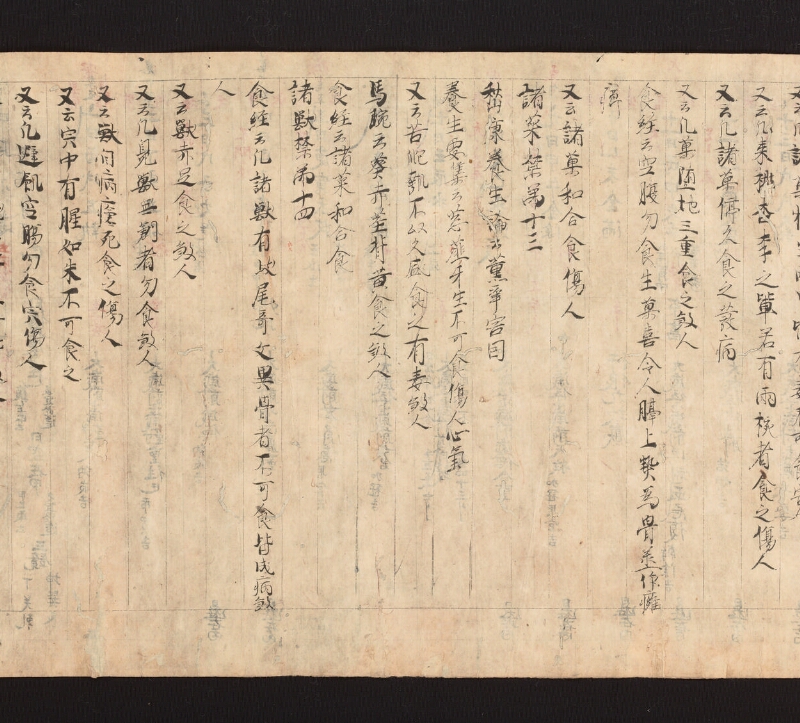 又云凡棗桃杏李之輩若有兩核者食之傷人
又云凡諸菓停久食之發病
又云凡菓墮地三重食之煞人
食經云空腹勿食生菓喜令人膈上熱為骨蒸作癰
癤
又云諸菓和合食傷人
諸菜禁第十三
嵇康養生論云薰辛害目
養生要集云葱薤牙生不可食傷人心氣
又云苦瓠不以久廁食之有毒煞人
馬琬云葵赤莖背黃食之煞人
食經云諸菜和合食
諸獸禁第十四
食經云凡諸獸有歧尾奇文異骨者不可食皆成病煞
人
又云獸赤足食之煞人
又云凡見獸无創者勿食煞人
又云獸自病瘡死食之傷人
又云宍中有腥如米不可食之
又云凡避飢空腸勿食宍傷人